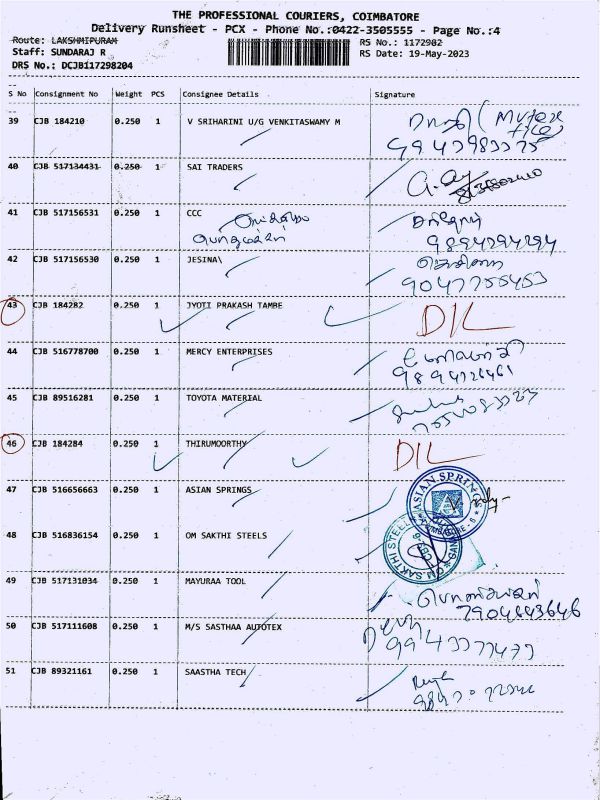 THE PROFESSIONAL COURIERS, COIMBATORE
Delivery Runsheet - PCX - Phone No.:0422-3505555 - Page No.:4
Route: LAKSHMIPURAM
RS No.: 1172982
Staff: SUNDARAJ R
RS Date: 19-May-2023
DRS No.: DCJB117298204
S No Consignment No Weight PCS Consignee Details Signature
39 CJB 184210 0.250 1 V SRIHARINI U/G VENKITASWAMY M
40 CJB 517134431 0.250 1 SAI TRADERS
41 CJB 517156531 0.250 1 CCC
9894294294
42 CJB 517156530 0.250 1 JESINA\
9047755453
43 CJB 184282 0.250 1 JYOTI PRAKASH TAMBE DIL
44 CJB 516778700 0.250 1 MERCY ENTERPRISES
9894726461
45 CJB 89516281 0.250 1 TOYOTA MATERIAL
46 CJB 184284 0.250 1 THIRUMOORTHY DIL
47 CJB 516656663 0.250 1 ASIAN SPRINGS
ASIAN SPRINGS
48 CJB 516836154 0.250 1 OM SAKTHI STEELS
OM SAKTHI STEELS
49 CJB 517131034 0.250 1 MAYURAA TOOL
7904843646
50 CJB 517111608 0.250 1 M/S SASTHAA AUTOTEX
51 CJB 89321161 0.250 1 SAASTHA TECH